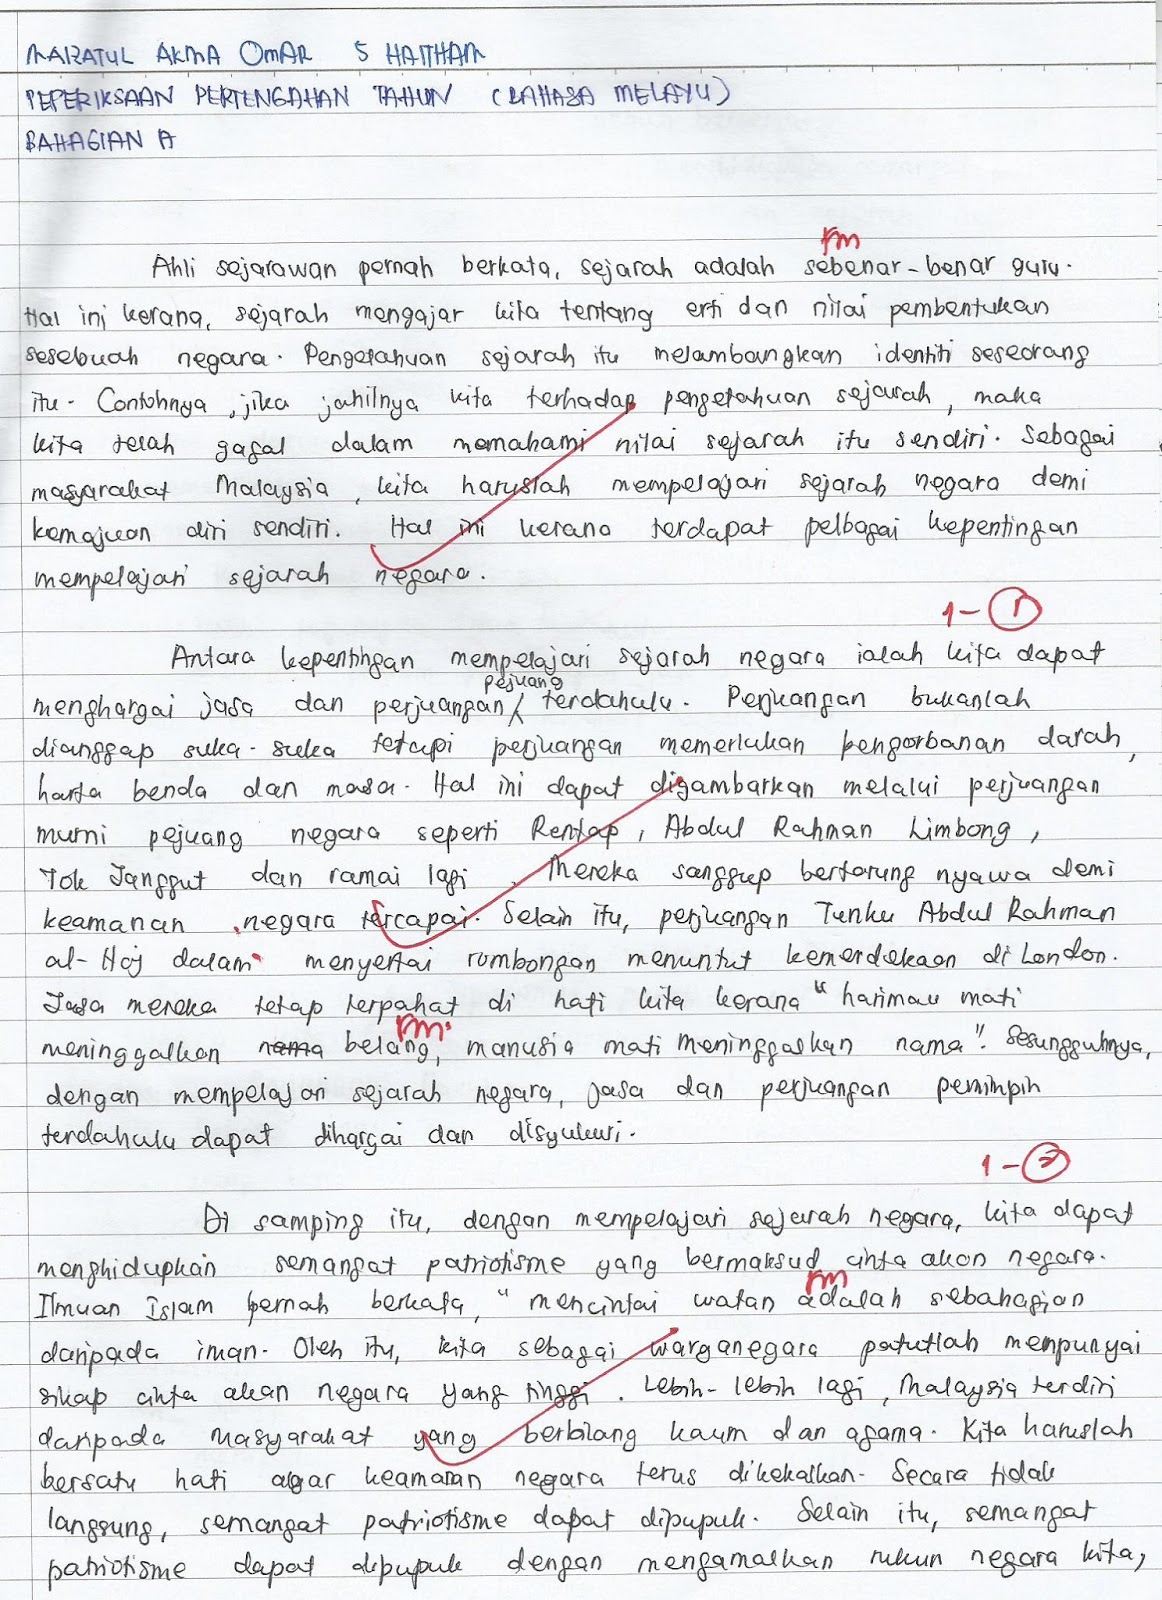 MAIZATUL AKMA OMAR 5 HAITHAM
PEPERIKSAAN PERTENGAHAN TAHUN (BAHASA MELAYU)
BAHAGIAN A
rm
Ahli sejarawan pernah berkata, sejarah adalah sebenar-benar guru.
Hal ini kerana, sejarah mengajar kita tentang erti dan nilai pembentukan
sesebuah negara. Pengetahuan sejarah itu melambangkan identiti seseorang
itu. Contohnya, jika jahilnya kita terhadap pengetahuan sejarah, maka
kita telah gagal dalam memahami nilai sejarah itu sendiri. Sebagai
masyarakat Malaysia, kita haruslah mempelajari sejarah negara demi
kemajuan diri sendiri. Hal ini kerana terdapat pelbagai kepentingan
mempelajari sejarah negara.
1-1
Antara kepentingan mempelajari sejarah negara ialah kita dapat
pejuang
menghargai jasa dan perjuangan/ terdahulu. Perjuangan bukanlah
dianggap suka-suka tetapi perjuangan memerlukan pengorbanan darah,
harta benda dan masa. Hal ini dapat digambarkan melalui perjuangan
murni pejuang negara seperti Rentap, Abdul Rahman Limbong,
Tok Janggut dan ramai lagi. Mereka sanggup bertarung nyawa demi
keamanan negara tercapai. Selain itu, perjuangan Tunku Abdul Rahman
al-Haj dalam menyertai rombongan menuntut kemerdekaan di London.
Jasa mereka tetap terpahat di hati kita kerana "harimau mati
rm
meninggalkan nama belang, manusia mati meninggalkan nama". Sesungguhnya,
dengan mempelajari sejarah negara, jasa dan perjuangan pemimpin
terdahulu dapat dihargai dan disyukuri.
1-2
Di samping itu, dengan mempelajari sejarah negara, kita dapat
menghidupkan semangat patriotisme yang bermaksud cinta akan negara.
rm
Ilmuan Islam pernah berkata, "mencintai watan adalah sebahagian
daripada iman. Oleh itu, kita sebagai warganegara patutlah mempunyai
sikap cinta akan negara yang tinggi. Lebih-lebih lagi, Malaysia terdiri
daripada masyarakat yang berbilang kaum dan agama. Kita haruslah
bersatu hati agar keamanan negara terus dikekalkan. Secara tidak
langsung, semangat patriotisme dapat dipupuk. Selain itu, semangat
patriotisme dapat dipupuk dengan mengamalkan rukun negara kita,